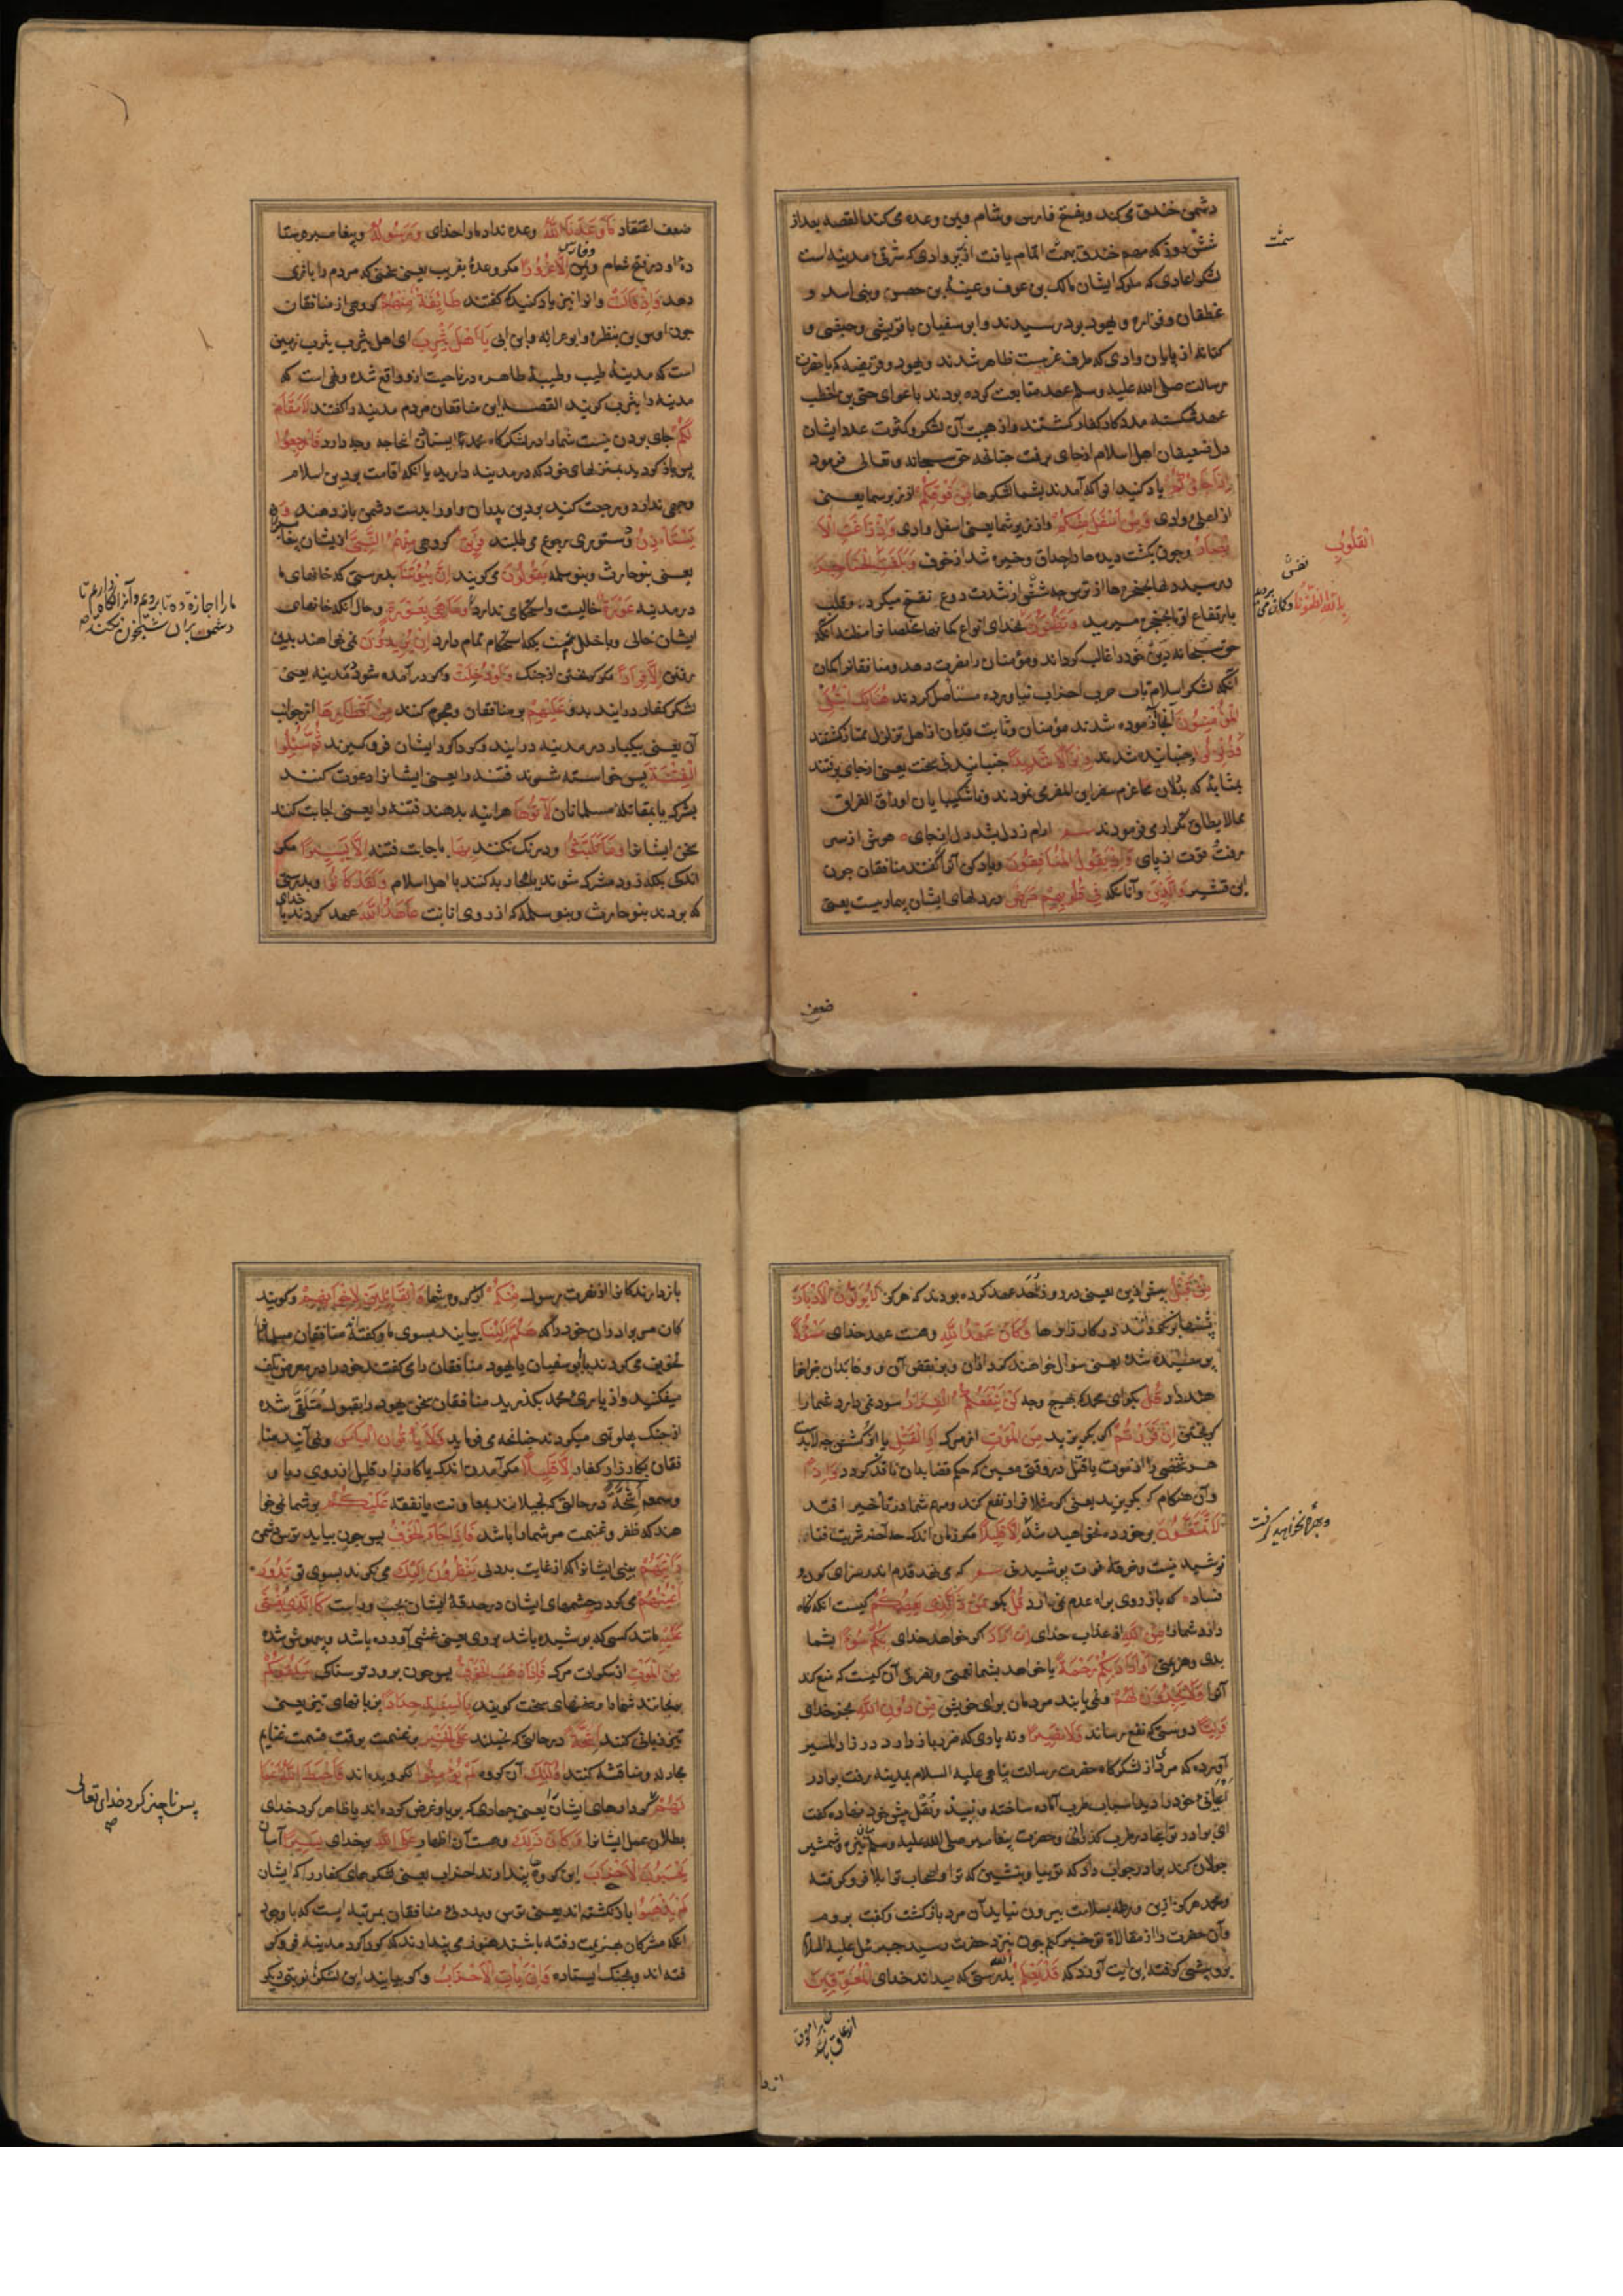 دشمن خندق می کند و بفتح فارس و شام و یمن وعده می کند القصه بعد از
شش روز که مهم خندق سمت اتمام یافت از زبر وادی که شرقی مدینه است
لشکر اعادی که ملوک ایشان مالک بن عوف و عیینه بن حصین و بنی اسد و
غطفان و فزاره و یهود بود در رسیدند و ابو سفیان با قریش و
کنانه از پایان وادی که طرف غربیست ظاهر شدند و یهود قریضه که با حضرت
رسالت صلی الله علیه وسلم عهد متابعت کرده بودند باغوای حی بن اخطب
عهد شکسته مددکار کفار گشتند و از هیبت آن لشکر و کثرت عدد ایشان
دل ضعیفان اهل اسلام از جای برفت چنانچه حق سبحانه و تعالی فرمود
اِذْ جَاؤُكُمْ یاد کنید آنرا که آمدند بشما لشکرها مِنْ فَوْقِكُمْ از زبر شما یعنی
از اعلی وادی وَمِنْ اَسْفَلَ مِنْكُمْ و از زیر شما یعنی اسفل وادی وَاِذْ زَاغَتِ الْاَ
بْصَارُ و چون بگشت دیده ها و خیره شد از خوف وَبَلَغَتِ الْقُلُوبُ الْحَنَاجِرَ
و برسید دلها بحنجرها از ترس چه شش از شدت روع نفخ میکرد و قلب
بارتفاع او بالحنجر میرسد وَتَظُنُّونَ بِاللّٰهِ الظُّنُونَا بخدای انواع گمانها
حق سبحانه دین خود را غالب گرداند و مؤمنان را نصرت دهد و منافقانرا گمان
آنکه لشکر اسلام تاب حرب احزاب نیاورده مستأصل گردند هُنَالِكَ ابْتُلِيَ
الْمُؤْمِنُونَ آنجا آزموده شدند مؤمنان و ثابت قدمان از اهل تزلزل ممتاز گشتند
وَزُلْزِلُوا و جنبانیده شدند زِلْزَالًا شَدِيدًا جنبانیدنی سخت یعنی از جای برفتند
بمثابه که بددلان عازم سفر این المفر می نمودند و ناشکیبایان اوراق الفراق
مما لا یطاق تکرار می فرمودند آرام ز دل شد دل از جای هوش از سر
برفت قوت از پای وَاِذْ يَقُولُ الْمُنَافِقُونَ و یاد کن آنرا گفتند منافقان چون
ابن قشیر وَالَّذِينَ و آنانکه فِي قُلُوبِهِمْ مَرَضٌ در دلهای ایشان بیماریست یعنی
سمت
القلوب
بالله الظنونا
ضعف
ضعف اعتقاد مَا وَعَدَنَا اللّٰهُ وعده نداد ما را خدای وَرَسُولُهُ و پیغامبر فرستا
ده او در فتح شام و فارس و یمن اِلَّا غُرُورًا مگر وعدهٔ بفریب یعنی سخنی که مردم را بازی
دهد وَاِذْ قَالَتْ و آنرا نیز یاد کنید که گفتند طَائِفَةٌ مِنْهُمْ گروهی از منافقان
چون اوس بن و ابو عرابه و ابن ابی يَا اَهْلَ يَثْرِبَ ای اهل یثرب یثرب زمین
است که مدینهٔ طیبه و طیبهٔ طاهره در ناحیت او واقع شده و نهی است که
مدینه را یثرب گویند القصه این منافقان مردم مدینه را گفتند لَا مُقَامَ
لَكُمْ جای بودن نیست شما را در لشکرگاه محمد فَارْجِعُوا
پس باز گردید بمنزلهای خود که در مدینه دارید یا آنکه اقامت بر دین اسلام
وجهی ندارد رجعت کنید بدین پدران و او را بدست دشمن باز دهید وَ
يَسْتَأْذِنُ و دستوری رجوع می طلبند فَرِيقٌ گروهی مِنْهُمُ النَّبِيَّ از ایشان پیغامبر را
یعنی بنو حارث و بنو سلمه يَقُولُونَ می گویند اِنَّ بُيُوتَنَا بدرستی که خانهای ما
در مدینه عَوْرَةٌ خالیست و استحکامی ندارد وَمَا هِيَ بِعَوْرَةٍ و حال آنکه خانهای
ایشان خالی و با خلل نیست بلکه استحکام تمام دارد اِنْ يُرِيدُونَ نمی خواهند بدین
رفتن اِلَّا فِرَارًا مگر گریختن از جنگ وَلَوْ دُخِلَتْ و اگر در آمده شود مدینه یعنی
لشکر کفار در آیند بدو عَلَيْهِمْ بر منافقان و هجوم کنند مِنْ اَقْطَارِهَا از جوانب
آن یعنی بیکبار در مدینه در آیند و گرداگرد ایشان فروگیرند ثُمَّ سُئِلُوا
الْفِتْنَةَ پس خواسته شوند فتنه را یعنی ایشانرا دعوت کنند
بشرک یا بمقاتلهٔ مسلمانان لَاٰتَوْهَا هر آینه بدهند فتنه را یعنی اجابت کنند
سخن ایشانرا وَمَا تَلَبَّثُوا و درنگ نکنند بِهَا باجابت فتنه اِلَّا يَسِيرًا مگر
اندکی بلکه زود مشرک شوند یا محاربه کنند با اهل اسلام وَلَقَدْ كَانُوا و بدرستی
که بودند بنو حارث و بنو سلمه که از روی انابت عَاهَدُوا اللّٰهَ عهد کردند با خدای
ما را اجازة ده تا برویم و آنرا نگاه داریم تا
دشمن بران شبیخون نکند صح
مِنْ قَبْلُ پیش ازین یعنی در روز اُحد عهد کرده بودند که هرگز لَا يُوَلُّونَ الْاَدْبَارَ
پشتها برنگردانند در کارزارها وَكَانَ عَهْدُ اللّٰهِ و هست عهد خدای مَسْئُولًا
پرسیده شده یعنی سوال خواهند کرد از آن و بر نقض آن و وفا بدان جزا خوا
هند داد قُلْ بگو ای محمد که بهیچ وجه لَنْ يَنْفَعَكُمُ الْفِرَارُ سود نمی دارد شما را
گریختن اِنْ فَرَرْتُمْ اگر بگریزید مِنَ الْمَوْتِ از مرگ اَوِ الْقَتْلِ یا از کشتن چه لابدست
هر شخصی را از موت یا قتل در وقتی معین که حکم قضا بدان نافذ گردد وَاِذًا
و آن هنگام که بگریزید یعنی اگر مثلا فرار نفع کند و مهم شما در تأخیر افتد
لَا تُمَتَّعُونَ برخورده نخواهید شد اِلَّا قَلِيلًا مگر زمان اندک چه آخر شربت فنا
نوشیدنیست و خرقهٔ فوت پوشیدنی که می نهد قدم اندر سرای کون و
فساد که باز روی براه عدم نمی آرد قُلْ بگو مَنْ ذَا الَّذِي يَعْصِمُكُمْ کیست آنکه نگاه
دارد شما را مِنَ اللّٰهِ از عذاب خدای اِنْ اَرَادَ اگر خواهد خدای بِكُمْ سُوءًا بشما
بدی و هزیمتی اَوْ اَرَادَ بِكُمْ رَحْمَةً یا خواهد بشما نعمتی و نصرتی آن کیست که منع کند
آنرا وَلَا يَجِدُونَ لَهُمْ و نمی یابند مردمان برای خویش مِنْ دُونِ اللّٰهِ بجز خدای
وَلِيًّا دوستی که نفع رساند وَلَا نَصِيرًا و نه یاوری که ضرر باز دارد در زاد المسیر
آورده که مردی از لشکرگاه حضرت رسالت پناهی علیه السلام بمدینه رفت برادر
اعیانی خود را دید اسباب طرب آماده ساخته و نبیذ و نُقْل پیش خود نهاده گفت
ای برادر تو اینجا در طرب گذرانی و حضرت پیغامبر صلی الله علیه وسلم میان نیزه و شمشیر
جولان کند برادر جواب داد که تو بیا و بنشین که ترا و اصحاب ترا بلا فرو گرفته
و محمد هرگز ازین ورطه بسلامت بیرون نیاید آن مرد باز گشت و گفت بروم
و آن حضرت را از مقالاة تو خبر کنم چون بنزد حضرت رسید جبرئیل علیه السلام
برو پیشی گرفته این آیت آورد که قَدْ يَعْلَمُ اللّٰهُ بدرستی که میداند خدای الْمُعَوِّقِينَ
و بهره نخواهید گرفت
باز دارندگانرا از نصرت رسول مِنْكُمْ از گروه شما وَالْقَائِلِينَ لِاِخْوَانِهِمْ و گویند
گان مر برادران خود را که هَلُمَّ اِلَيْنَا بیایید بسوی ما و گفته‌اند منافقان مسلمانانرا
تخویف می کردند بابو سفیان یا یهود منافقان را می گفتند خود را در معرض تلف
میفکنید و از یاری محمد بگذرید منافقان سخن یهود را بقبول مُتَلَقَّی شده
از جنگ پهلو تهی میکردند چنانچه می فرماید وَلَا يَأْتُونَ الْبَأْسَ و نمی آیند منا
فقان بکارزار کفار اِلَّا قَلِيلًا مگر آمدن اندک یا کارزار قلیل از روی ریا و
وسمعه اَشِحَّةً در حالتی که بخیلانند بمعاونت یا نفقه عَلَيْكُمْ بر شما نمی خوا
هند که ظفر و غنیمت مر شما را باشد فَاِذَا جَاءَ الْخَوْفُ پس چون بیاید ترس دشمن
رَاَيْتَهُمْ بینی ایشانرا که از غایت بددلی يَنْظُرُونَ اِلَيْكَ می نگرند بسوی تو تَدُورُ
اَعْيُنُهُمْ می گردد چشمهای ایشان در حدقهٔ ایشان بچپ و راست كَالَّذِي يُغْشَى
عَلَيْهِ مانند کسی که پوشیده باشد بروی یعنی غشی آورده باشد و بیهوش شده
مِنَ الْمَوْتِ از سکرات مرگ فَاِذَا ذَهَبَ الْخَوْفُ پس چون برود ترسناکی سَلَقُوكُمْ
برنجانند شما را و سخنهای سخت گویند بِاَلْسِنَةٍ حِدَادٍ بزبانهای تیز یعنی
تیز زبانی کنند اَشِحَّةً در حالتی که بخیلند عَلَى الْخَيْرِ بر غنیمت بوقت قسمت غنایم
مجادله و مناقشه کنند اُولٰئِكَ آن گروه لَمْ يُؤْمِنُوا نگرویده اند فَاَحْبَطَ اللّٰهُ اَعْمَا
لَهُمْ کردارهای ایشانرا یعنی جهادی که بریا و غرض کرده اند یا ظاهر کرد خدای
بطلان عمل ایشانرا وَكَانَ ذٰلِكَ و هست آن اظهار عَلَى اللّٰهِ بر خدای يَسِيرًا آسان
يَحْسَبُونَ الْاَحْزَابَ این گروه پندارند احزاب یعنی لشکرهای کفار را که ایشان
لَمْ يَذْهَبُوا باز نگشته اند یعنی ترس و بددلی منافقان بمرتبه ایست که با وجود
آنکه مشرکان هزیمت رفته باشند هنوز می پندارند که گرداگرد مدینه فرو گر
فته اند و بجنگ ایستاده وَاِنْ يَأْتِ الْاَحْزَابُ و اگر بیایند این لشکر نوبتی دیگر
پس ناچیز کرد خدای تعالی
صح